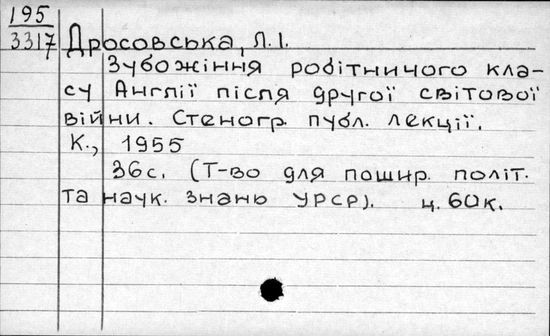 195
3317 Дросовська, Л.І.
Зубожіння робітничого кла-
су Англії після другої світової
війни. Стеногр. публ. лекції.
К., 1955
36с. (Т-во для пошир. політ.
та наук. знань УРСР). ц. 60к.